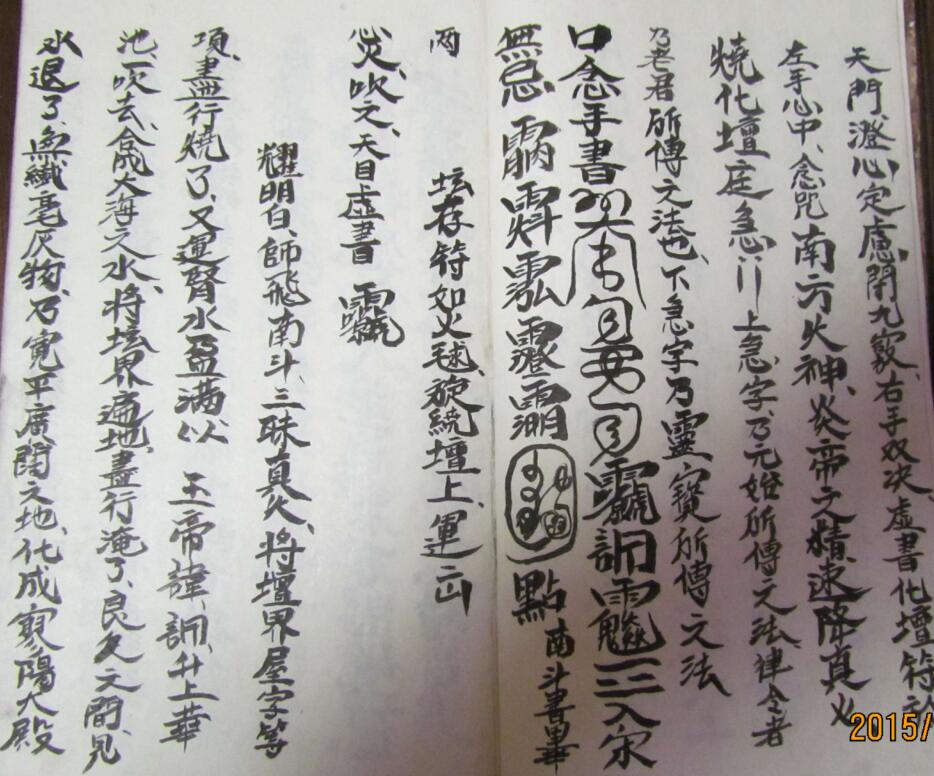 天門、澄心定慮、開九竅、右手双决、虚書化壇符於
左手心中、念咒南方火神、炎帝之精、速降真火
燒化壇庭急〻上急字、乃元始所傳之法、律令者
乃老君所傳之法也、下急字乃靈寶所傳之法
口念手書
無忌 點南斗書畢
两 坛存符如火毬、旋繞壇上、運
心炁、吹之、天目虚書
耀明白、師飛南斗、三昧真火、将壇界屋字等
項、盡行燒了、又運腎水盈满、以 玉帝諱、詷、升上華
池、一吹去、合成大海之水、将坛界遍地、盡行淹了、良久之間、見
水退了、無纖毫灰物、乃寛平廣闊之地、化成寥陽大殿
2015/